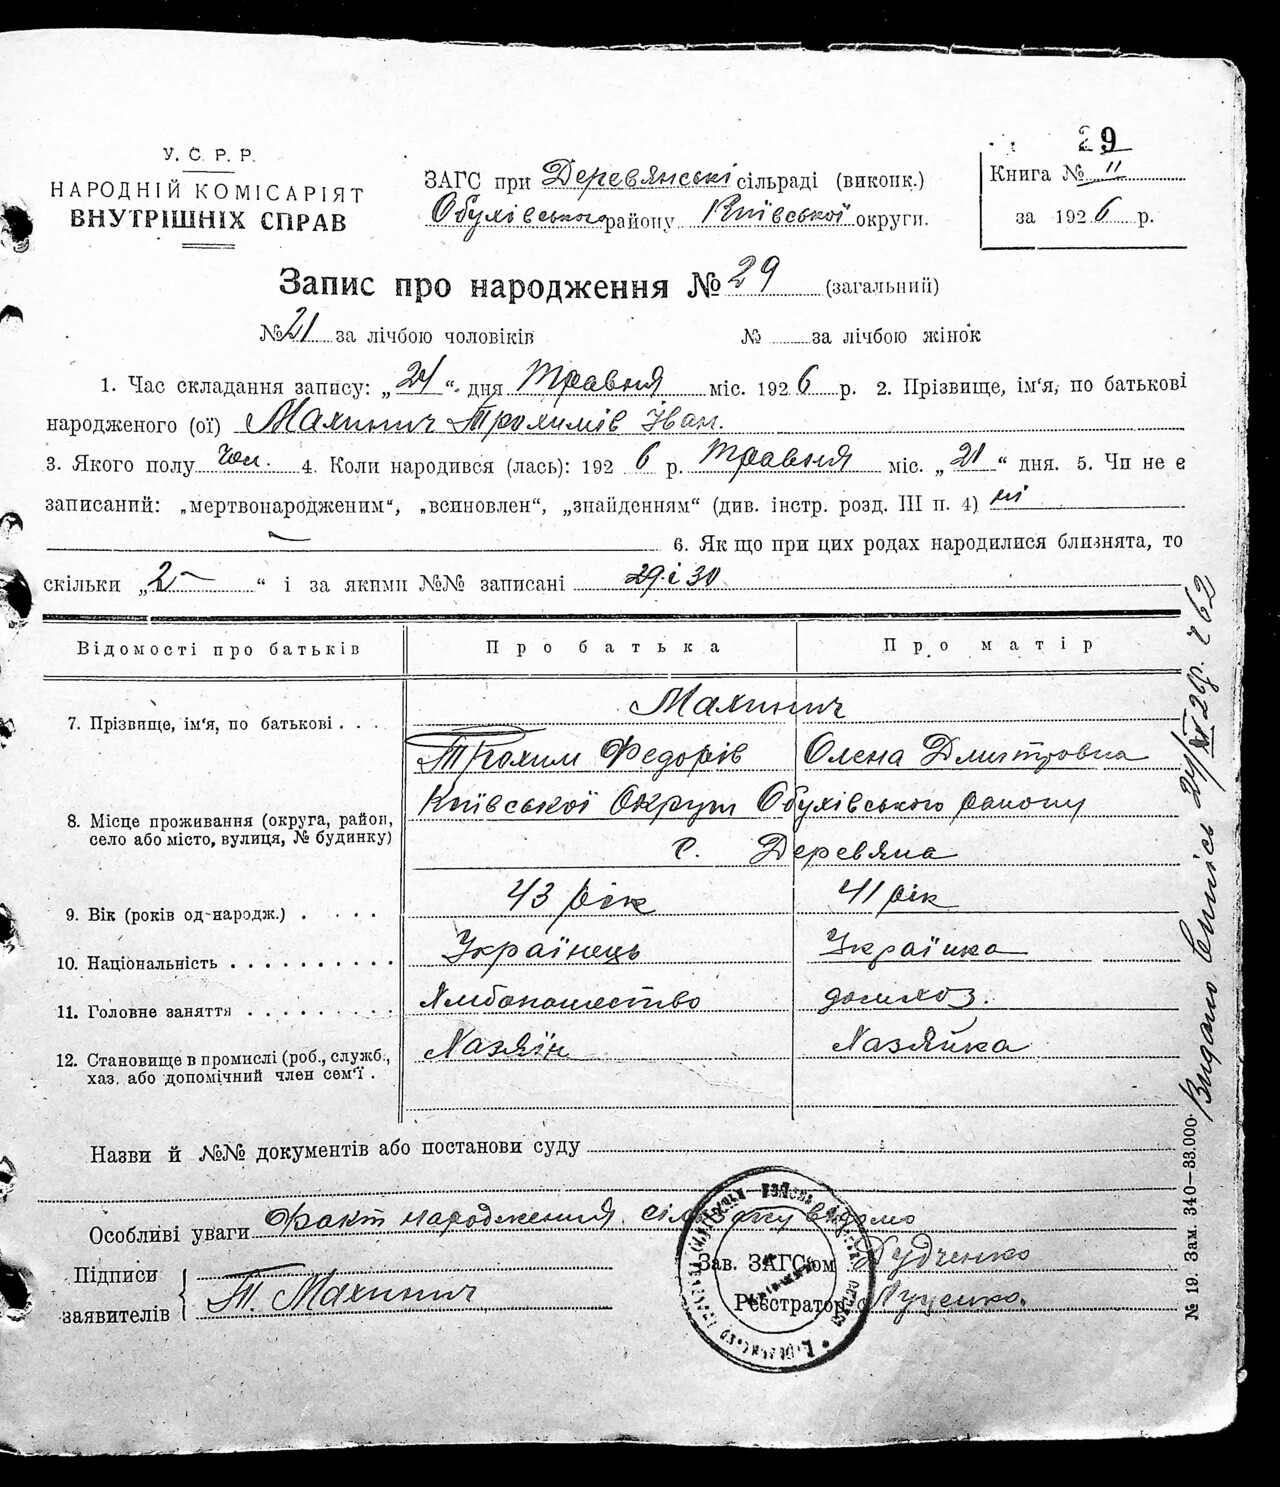 29
У. С. Р. Р.
НАРОДНІЙ КОМІСАРІЯТ
ВНУТРІШНІХ СПРАВ
ЗАГС при Деревянські сільраді (виконк.)
Обухівського району Київської округи.
Книга № II
за 1926 р.
Запис про народження № 29 (загальний)
№ 21 за лічбою чоловіків № за лічбою жінок
1. Час складання запису: „24“ дня Травня міс. 1926 р. 2. Прізвище, ім'я, по батькові
народженого (ої) Махинич Трохимів Іван.
3. Якого полу Чол. 4. Коли народився (лась): 1926 р. Травня міс. „21“ дня. 5. Чи не є
записаний: „мертвонародженим“, „всиновлен“, „знайденням“ (див. інстр. розд. III п. 4) ні
6. Якщо при цих родах народилися близнята, то
скільки „2“ і за якими №№ записані 29 і 30
Відомості про батьків Про батька Про матір
7. Прізвище, ім'я, по батькові . . . Махинич
Трохим Федорів Олена Дмитровна
8. Місце проживання (округа, район, село або місто, вулиця, № будинку) Київської Округи Обухівського району
с. Деревяна
9. Вік (років од народж.) . . . . 43 рік 41 рік
10. Національність . . . . . . . . . . Українець Українка
11. Головне заняття . . . . . . . . . Хлібопашество домхоз.
12. Становище в промислі (роб., служб., хаз. або допомічний член сем'ї . Хазяїн Хазяйка
Назви й №№ документів або постанови суду
Особливі уваги Факт народження сільраді відомо
Підписи
заявителів Т. Махинич
Зав. ЗАГС'ом Дудченко
Реєстратор Луценко.
№ 19. Зам. 340—33.000.
Видано